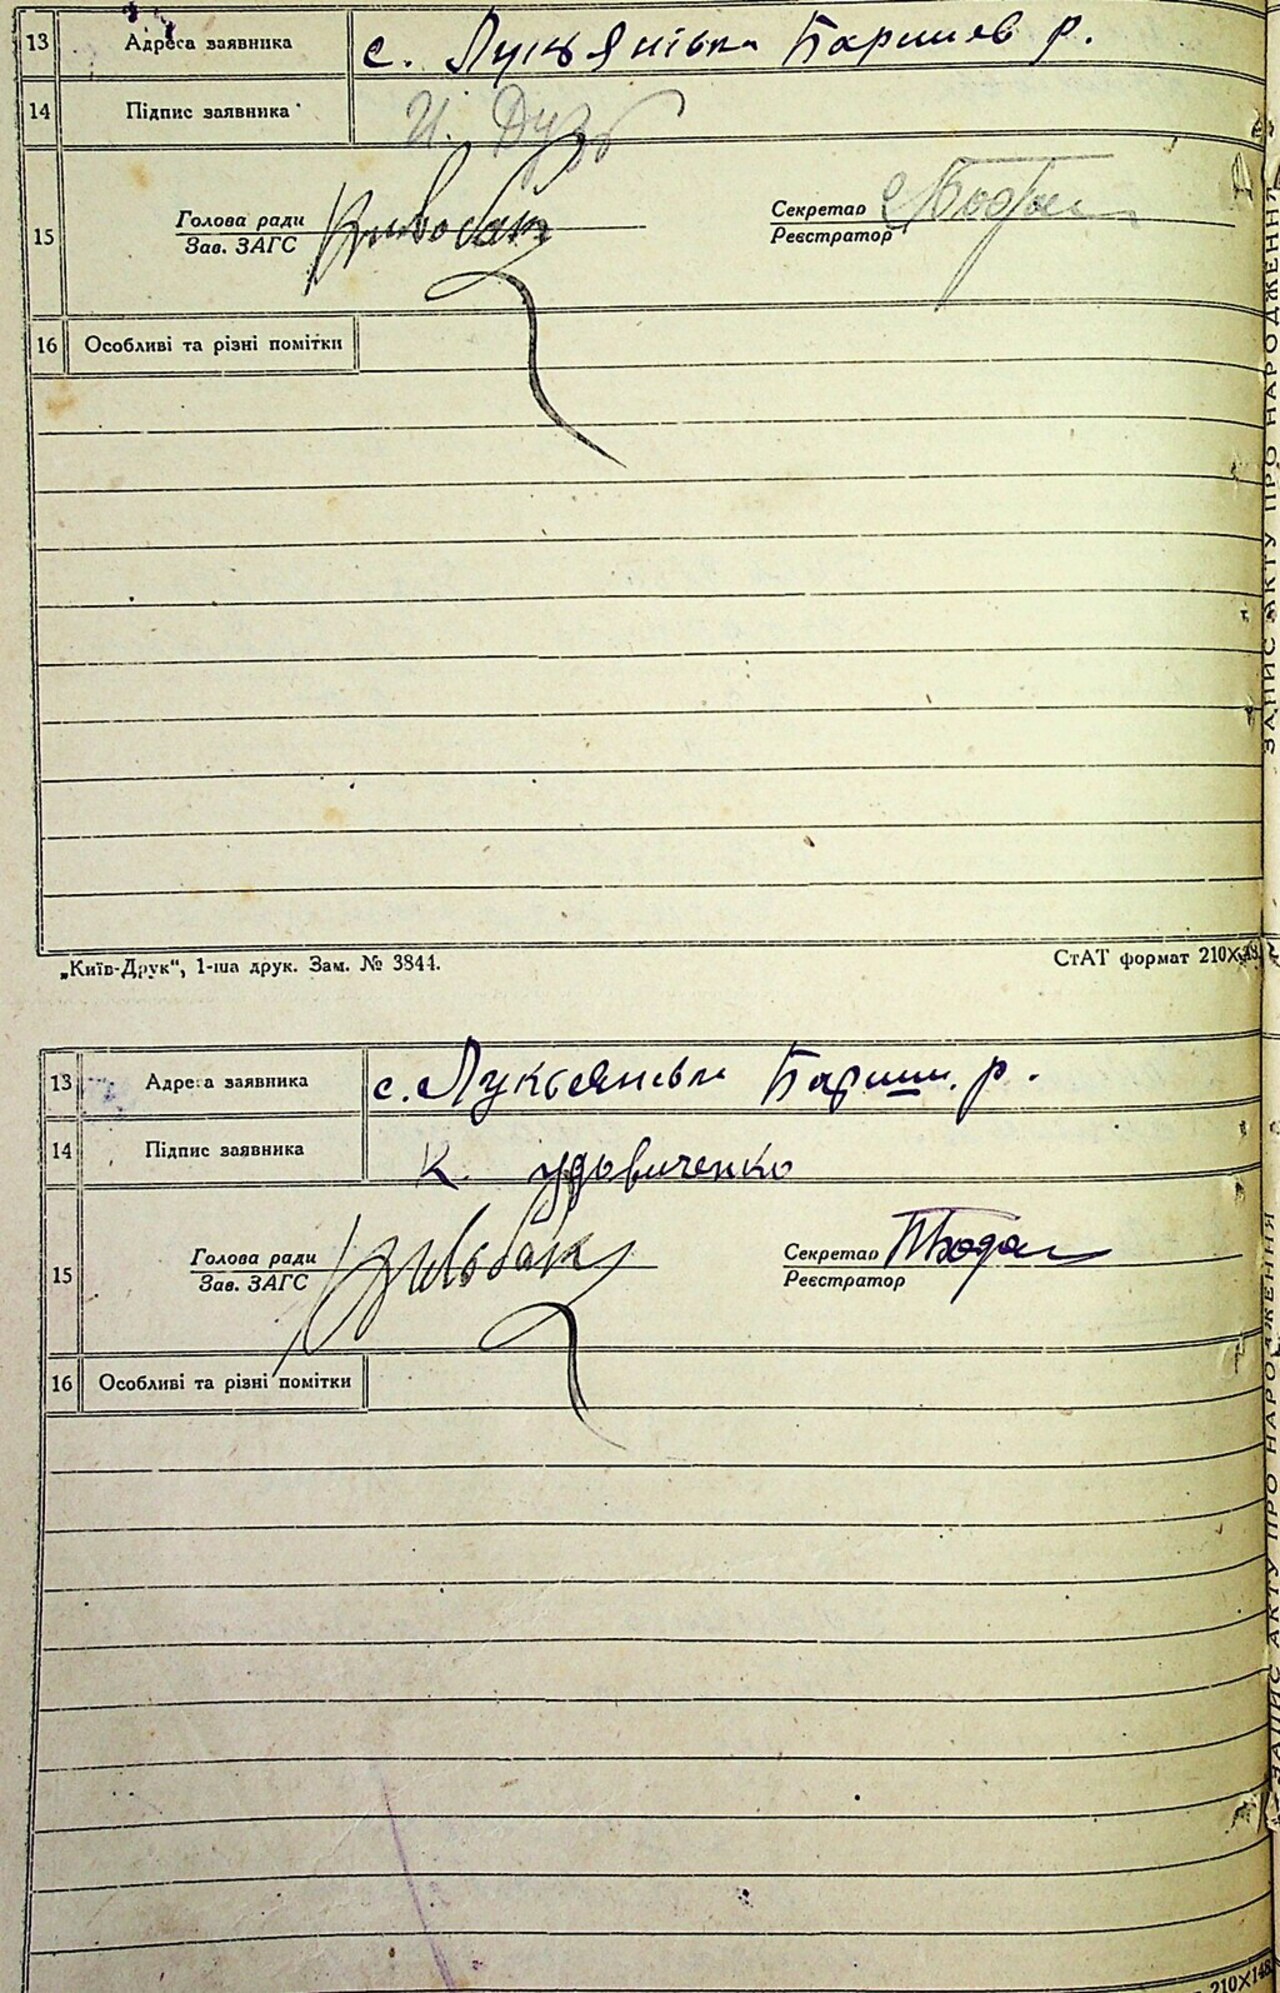 13 Адреса заявника с. Лукьянівка Баришев р.
14 Підпис заявника И.
15 Голова ради Секретар
Зав. ЗАГС Реєстратор
16 Особливі та різні помітки
„Київ-Друк“, 1-ша друк. Зам. № 3844. СтАТ формат 210X148
13 Адреса заявника с. Лукьянівка Бариш. р.
14 Підпис заявника К. Удовиченко
15 Голова ради Секретар
Зав. ЗАГС Реєстратор
16 Особливі та різні помітки
210X148
ЗАПИС АКТУ ПРО НАРОДЖЕННЯ
ЗАПИС АКТУ ПРО НАРОДЖЕННЯ